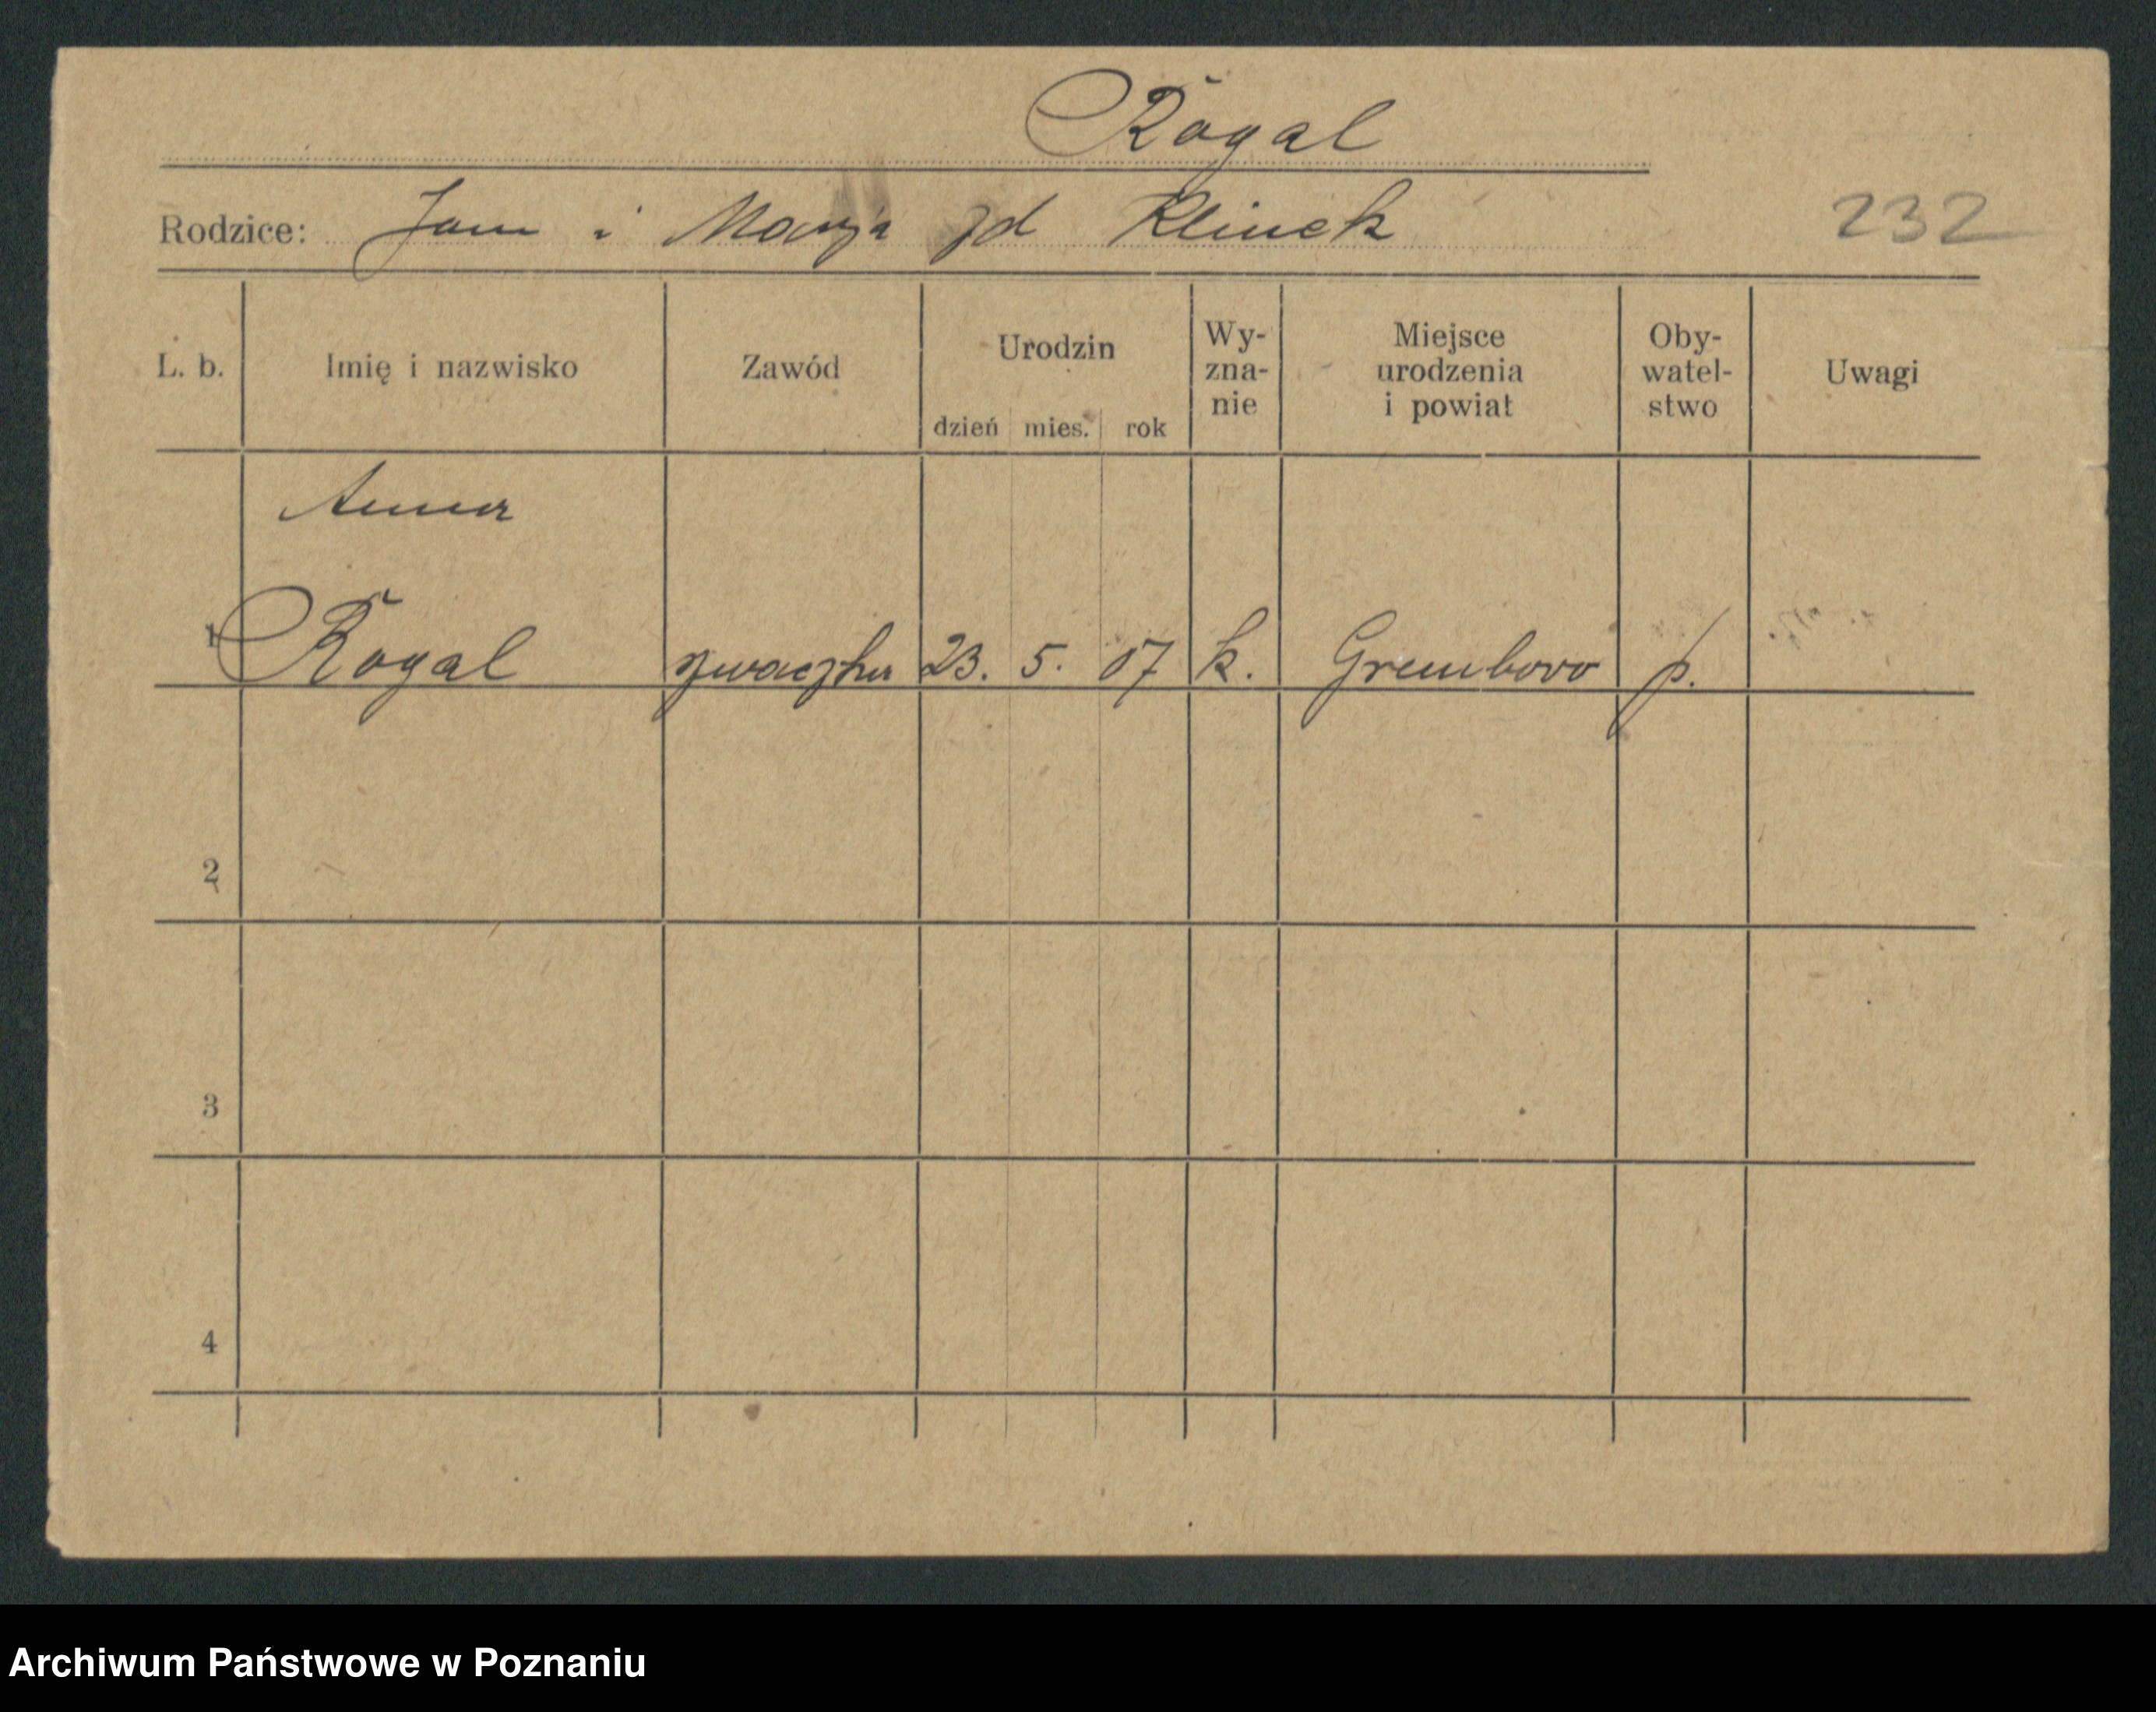 Rogal
Rodzice: Jan i Marja zd Klinek
232
L. b. Imię i nazwisko Zawód Urodzin dzień mies. rok Wy-zna-nie Miejsce urodzenia i powiat Oby-watel-stwo Uwagi
Anna
1 Rogal szwaczka 23. 5. 07 k. Grembowo p.
2
3
4
Archiwum Państwowe w Poznaniu